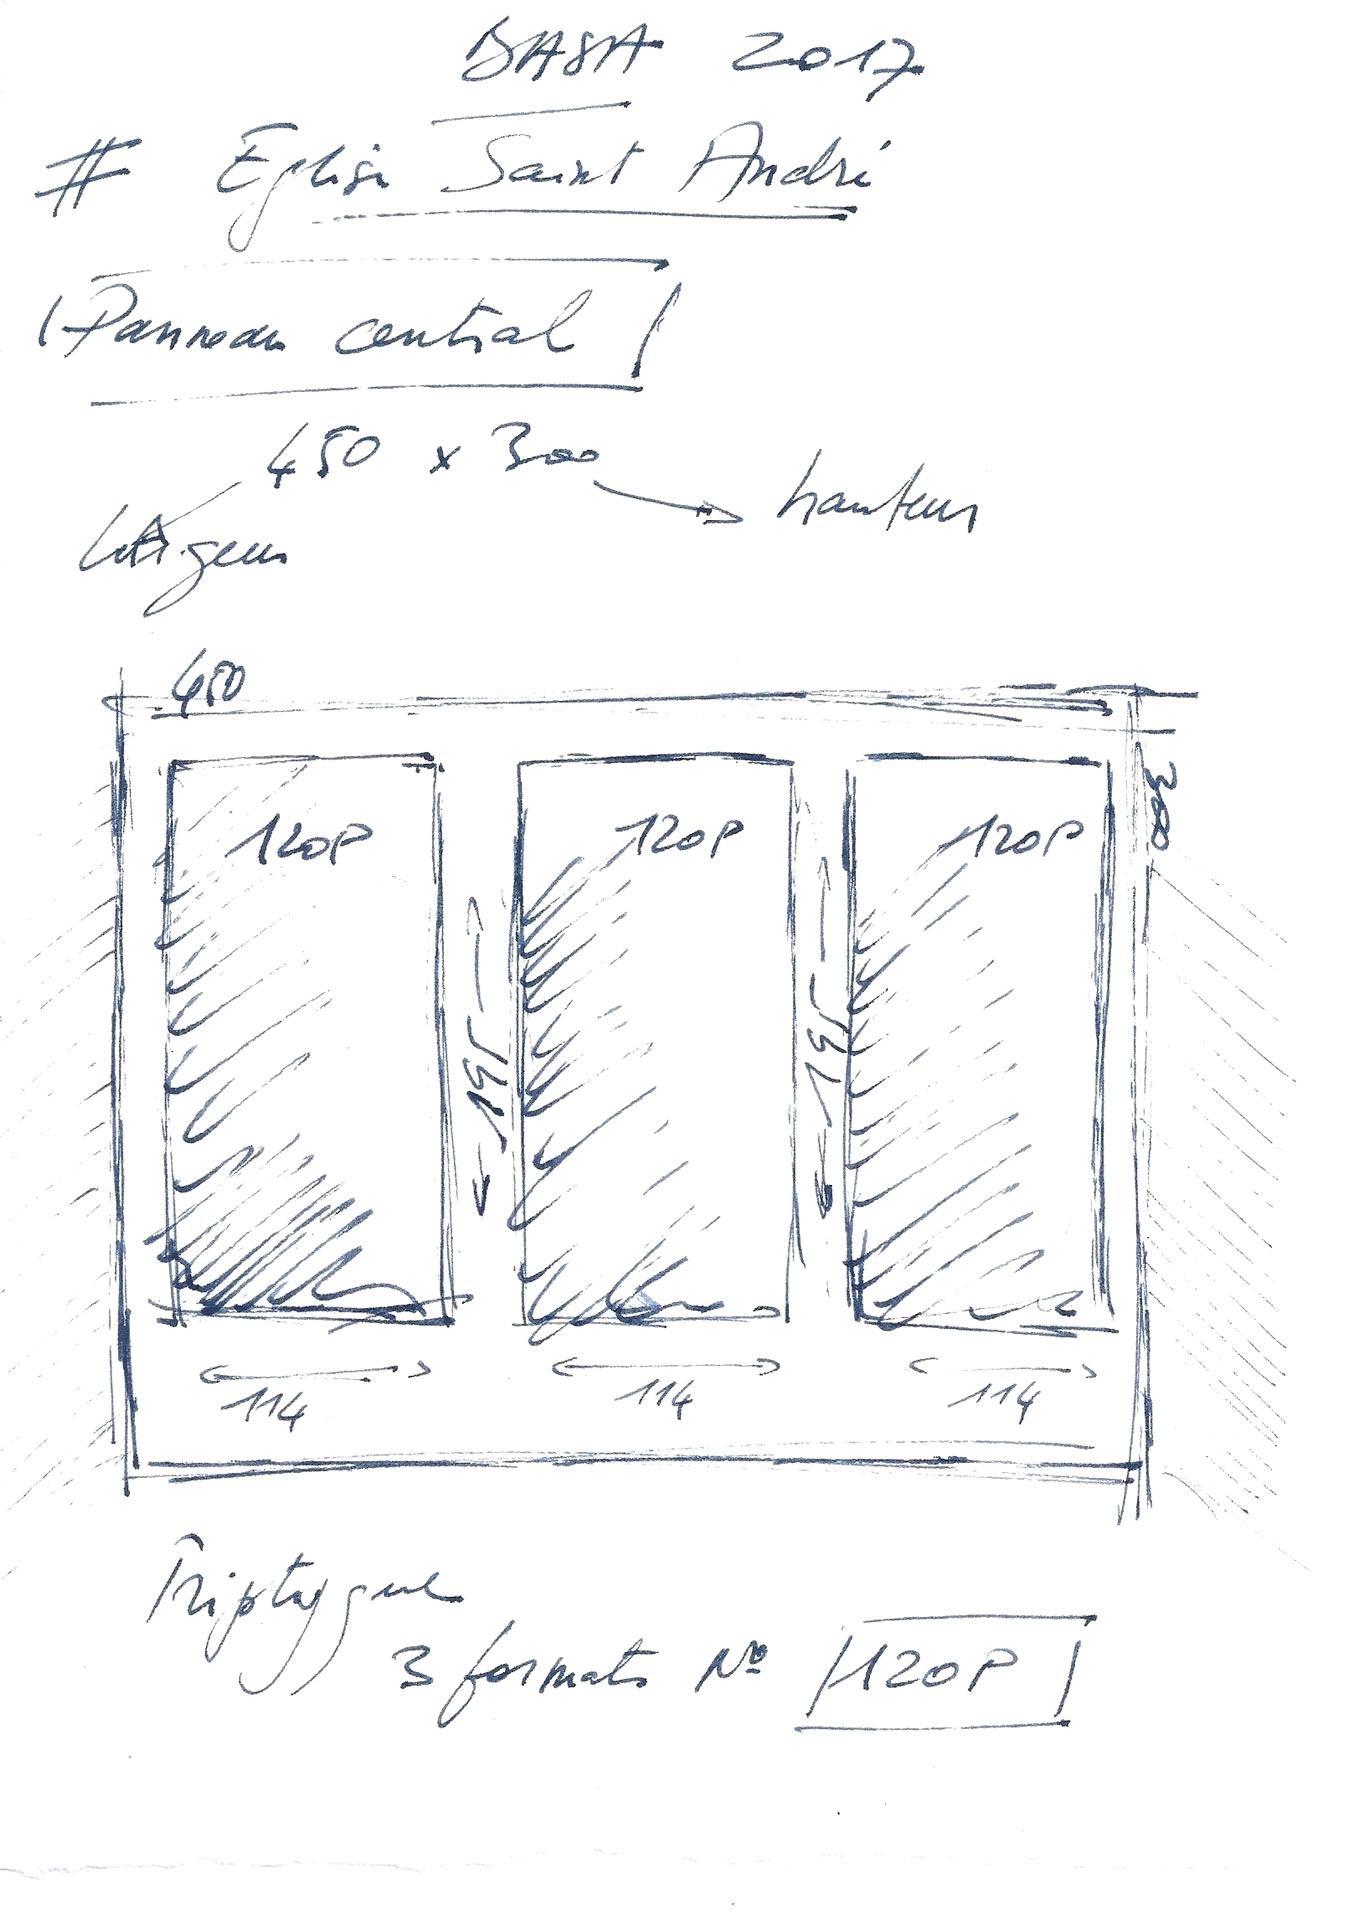 BASA 2017
# Eglise Saint André
Panneau central
450 x 300
hauteur
LArgeur
450
300
120P 120P 120P
195 195
114 114 114
Triptyque
3 formats No 120P